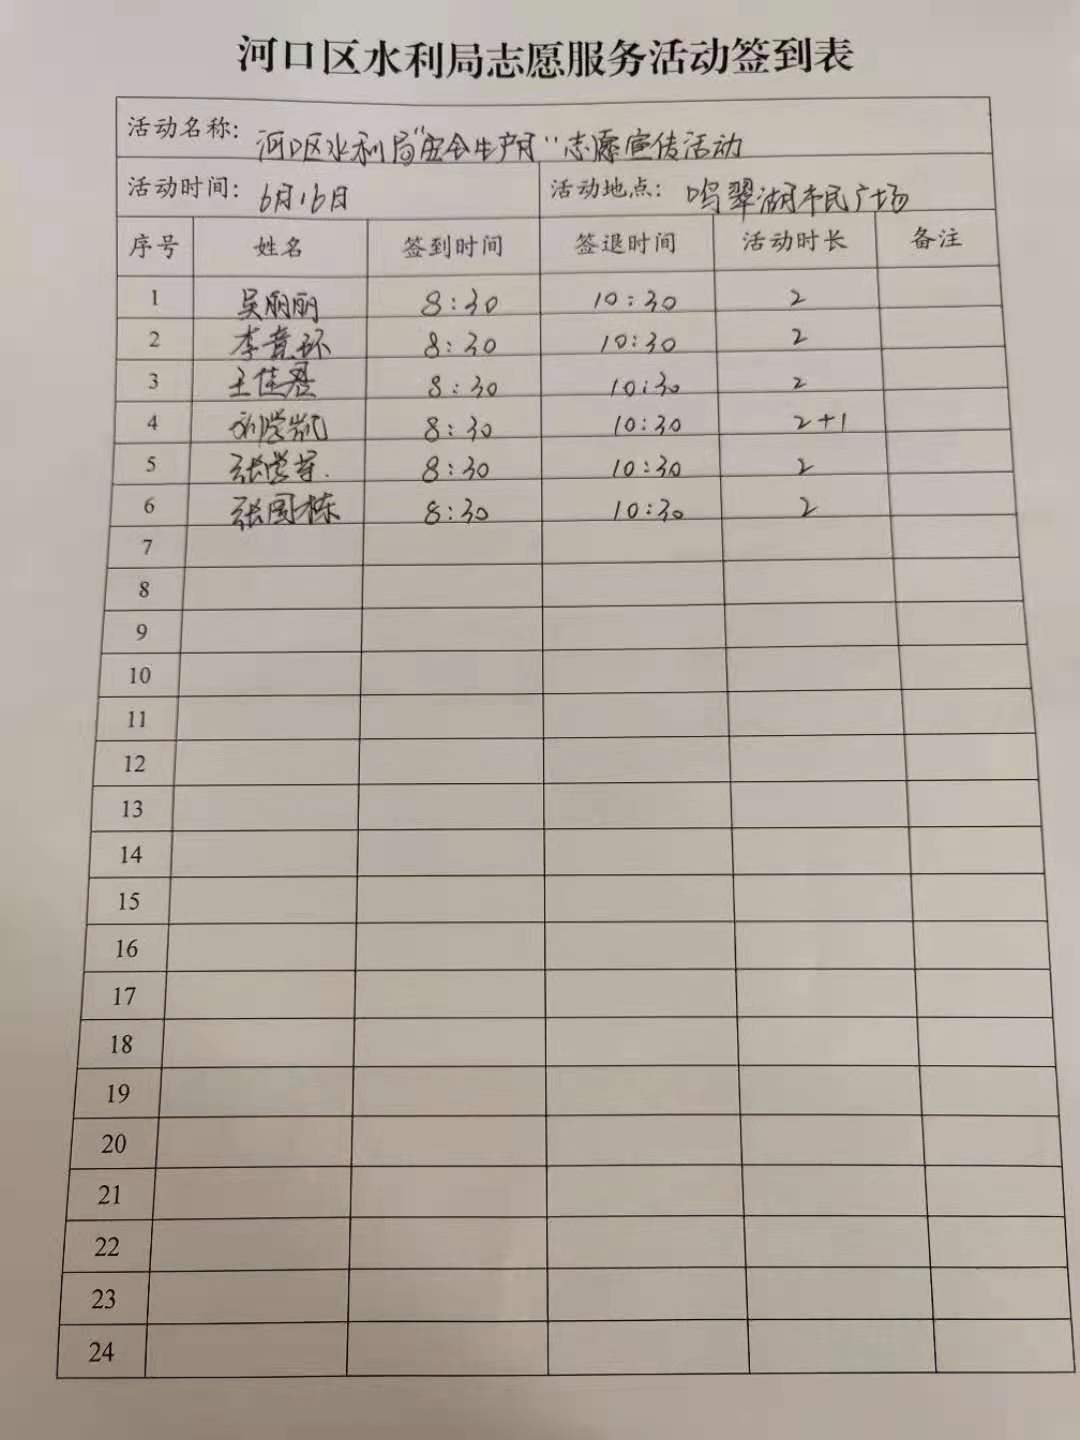 河口区水利局志愿服务活动签到表
活动名称: 河口区水利局“安全生产月”志愿宣传活动
活动时间: 6月16日 活动地点: 鸣翠湖市民广场
序号 姓名 签到时间 签退时间 活动时长 备注
1 吴丽丽 8:30 10:30 2
2 李竟环 8:30 10:30 2
3 王佳 8:30 10:30 2
4 刘学凯 8:30 10:30 2+1
5 张学 8:30 10:30 2
6 张国栋 8:30 10:30 2
7
8
9
10
11
12
13
14
15
16
17
18
19
20
21
22
23
24